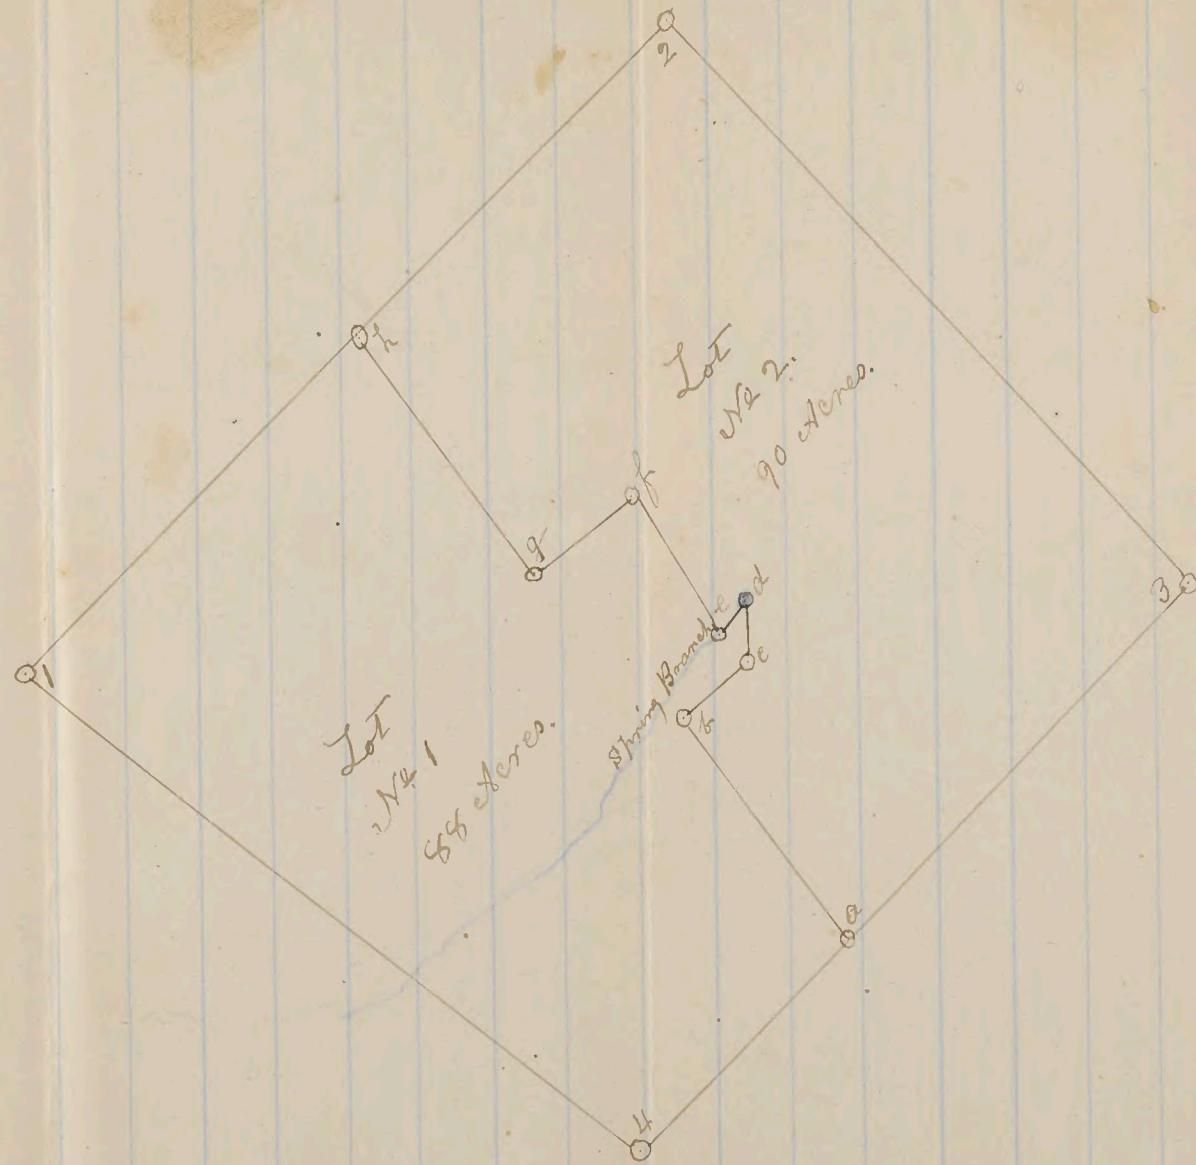 2
h
Lot
No 2.
90 Acres.
f
g
e
d
3
c
Spring Branch
b
1
Lot
No 1
88 Acres.
a
4